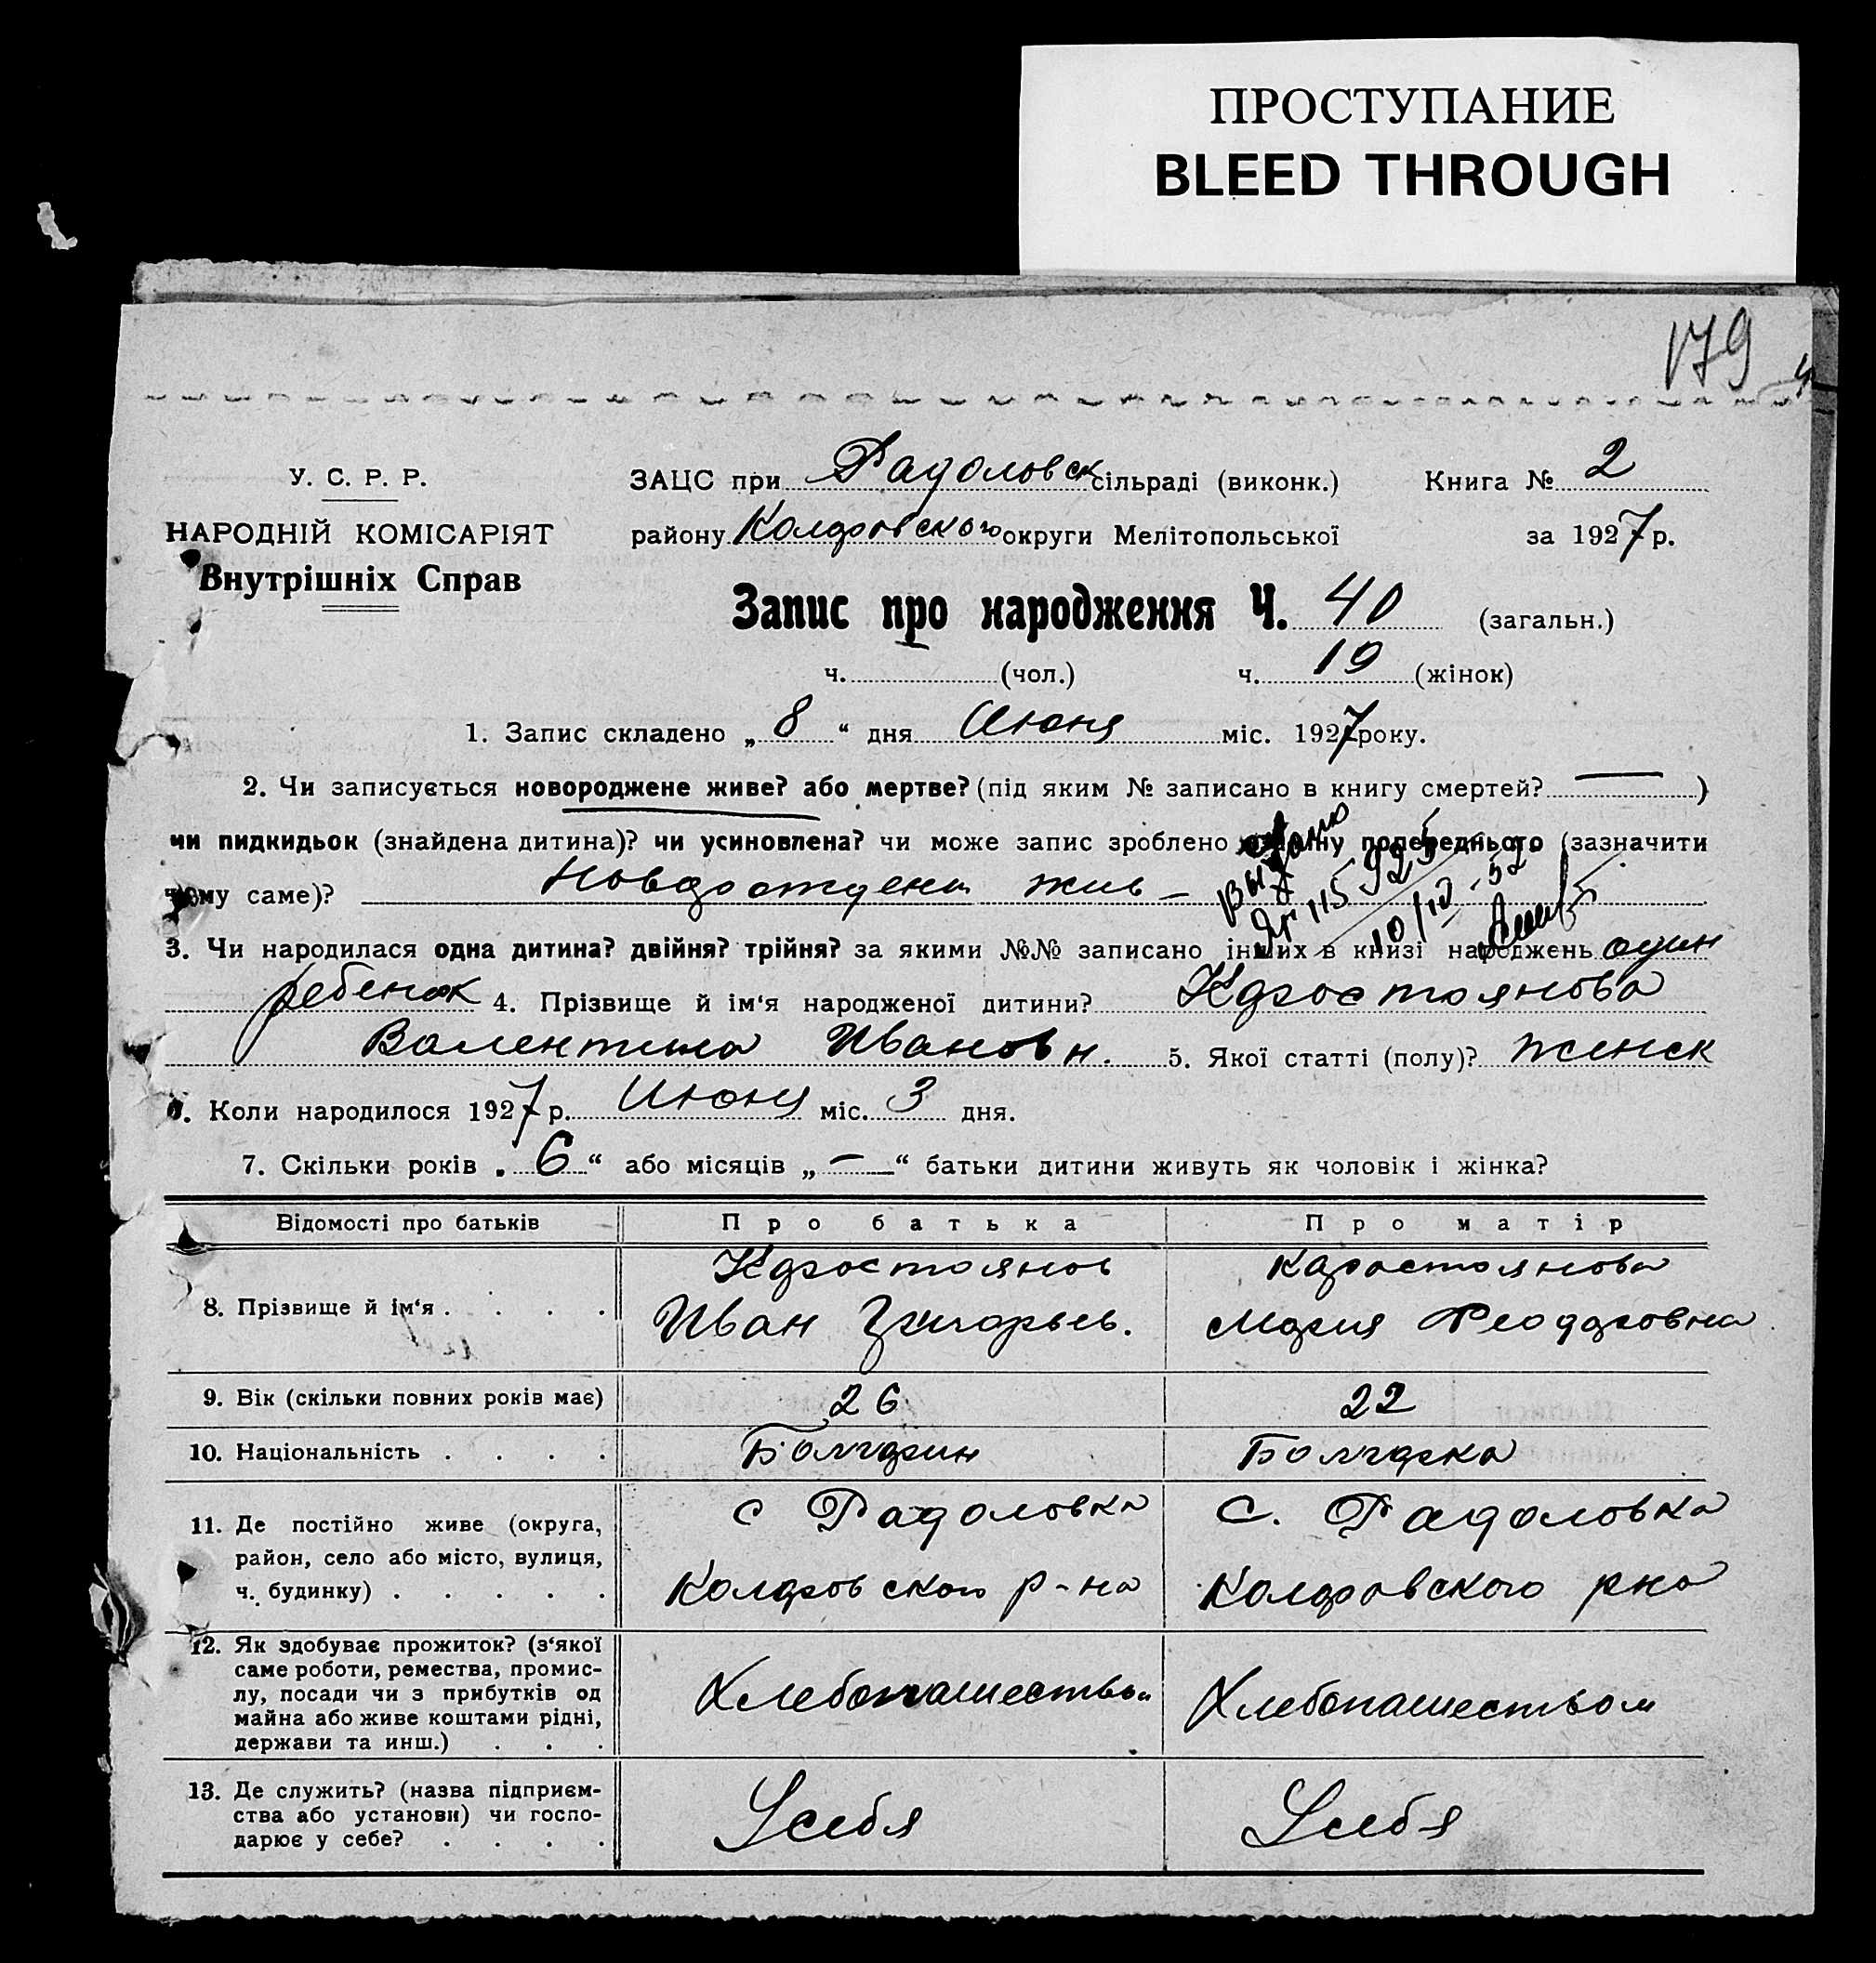 ПРОСТУПАНИЕ
BLEED THROUGH
179
У. С. Р. Р.
НАРОДНІЙ КОМІСАРІЯТ
Внутрішніх Справ
ЗАЦС при Радоловск сільраді (виконк.) Книга № 2
району Коларовского округи Мелітопольської за 1927 р.
Запис про народження Ч. 40 (загальн.)
ч. (чол.) ч. 19 (жінок)
1. Запис складено „ 8 “ дня Июня міс. 1927 року.
2. Чи записується новороджене живе? або мертве? (під яким № записано в книгу смертей? — )
чи пидкидьок (знайдена дитина)? чи усиновлена? чи може запис зроблено попереднього (зазначити
чому саме)?  жив –
Выдано
115925
10/IV-52
3. Чи народилася одна дитина? двійня? трійня? за якими №№ записано інших в книзі народжень один
ребенок 4. Прізвище й ім‘я народженої дитини? Каростоянова
Валентина Ивановн. 5. Якої статті (полу)? женск
6. Коли народилося 1927 р. Июня міс. 3 дня.
7. Скільки років „ 6 “ або місяців „ — “ батьки дитини живуть як чоловік і жінка?
Відомості про батьків Про батька Про матір
8. Прізвище й ім‘я . . . .
Каростоянов
Иван Григорьев.
Каростоянова
Мария Феодаровна
9. Вік (скільки повних років має) 26 22
10. Національність . . . . Болгарин Болгарка
11. Де постійно живе (округа,
район, село або місто, вулиця,
ч. будинку) . . . . .
с Радоловка
Коларовского р-на
С. Радоловка
Коларовского рна
12. Як здобуває прожиток? (з‘якої
саме роботи, ремества, промис-
лу, посади чи з прибутків од
майна або живе коштами рідні,
держави та инш.) . . .
Хлебопашеством
Хлебопашеством
13. Де служить? (назва підприєм-
ства або установи) чи госпо-
дарює у себе? . . . .
У себя
У себя